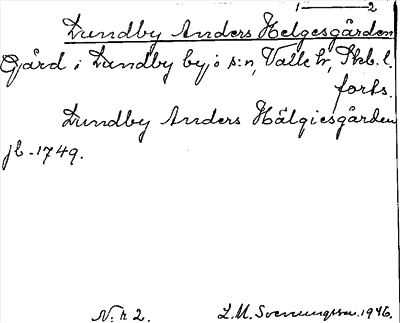 1 2
Lundby Anders Helgesgården
Gård i Lundby by, ö s:n, Valle hr, Skb. l.
forts.
Lundby Anders Hälgiesgården
jb. 1749.
N:r 2. L. M. Svenungsson. 1946.